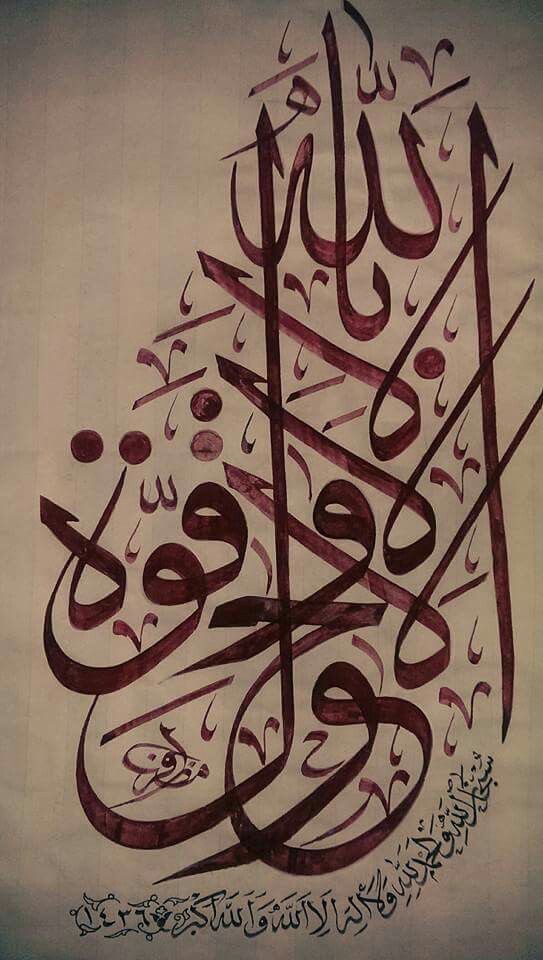 لا حول ولا قوة إلا بالله
سبحان الله والحمد لله ولا إله إلا الله والله أكبر ١٤٣٦